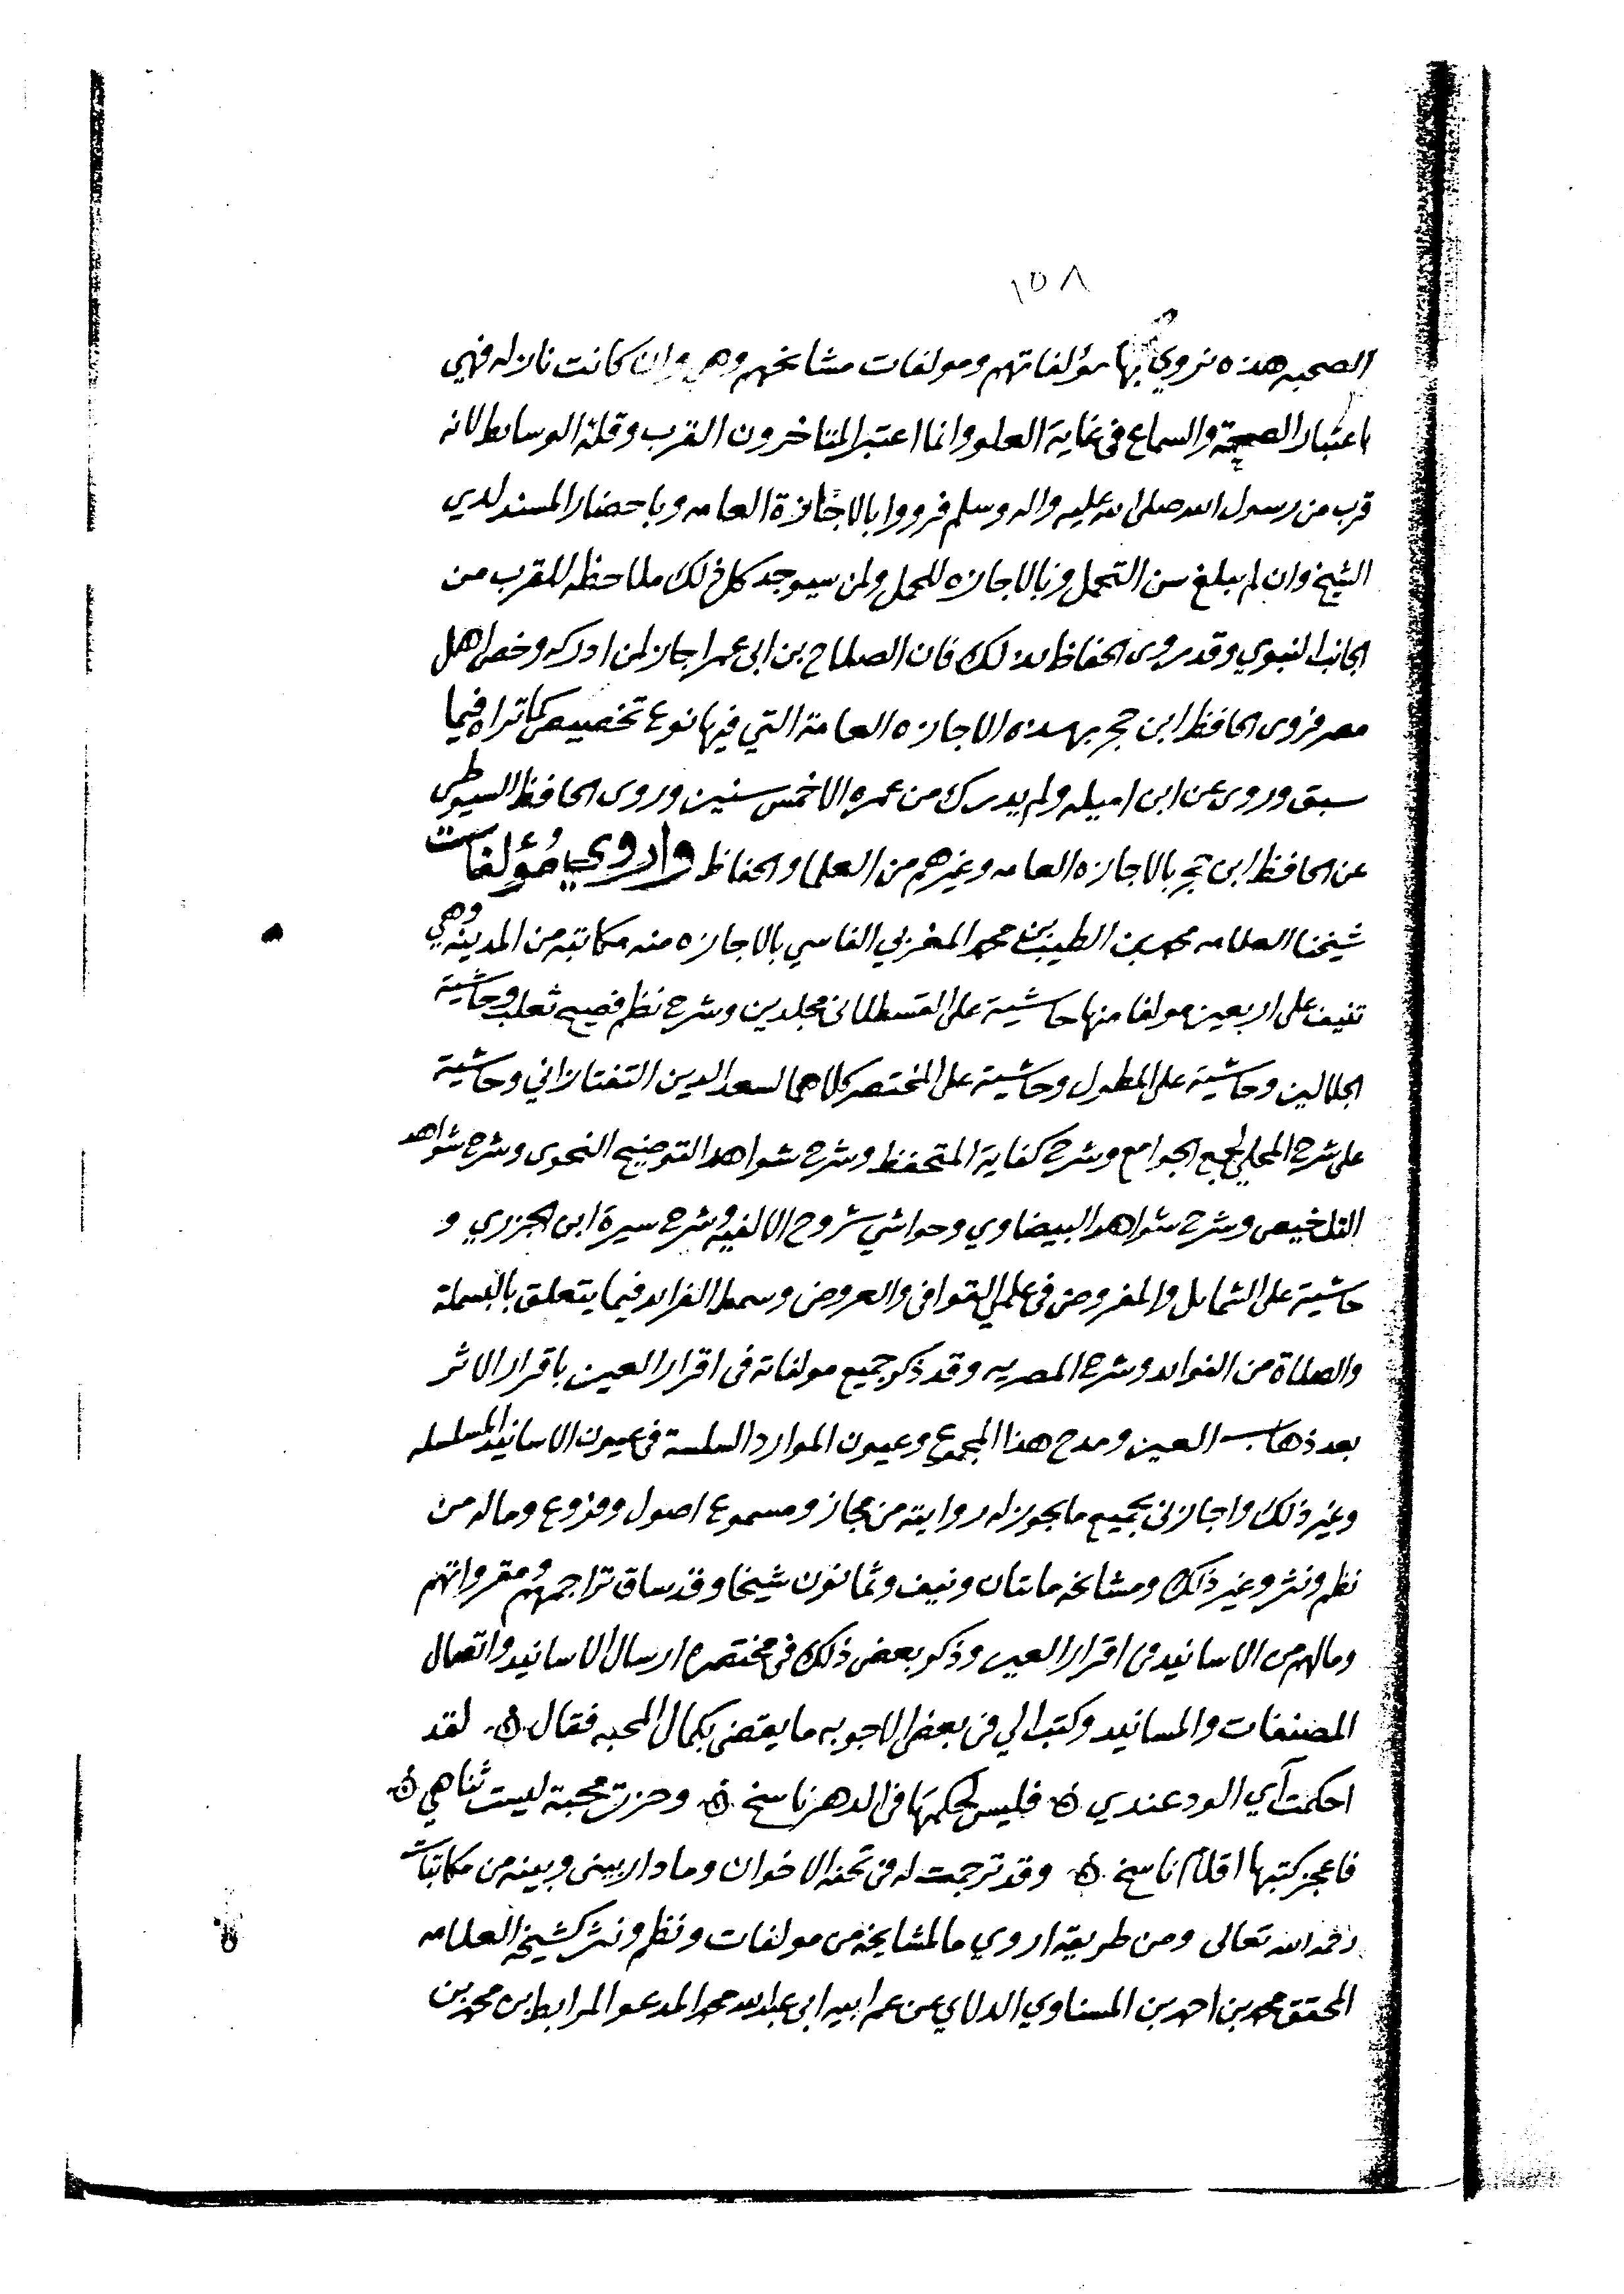 ١٥٨
الصحبه هذه نروي بها مؤلفاتهم ومولفات مشايخهم وهي وان كانت نازله فهي
باعتبار الصحة والسماع في غاية العلو وانما اعتبر المتاخرون القرب وقلة الوسايط لانه
قرب من رسول الله صلى الله عليه واله وسلم فرووا بالاجازة العامه وباحضار المسند لدي
الشيخ وان لم يبلغ سن التحمل وبالاجازه للحمل ولمن سيوجد كل ذلك ملاحظه للقرب من
الجانب النبوي وقد روى الحفاظ بذلك فان الصلاح بن ابي عمر اجاز لمن ادركه وخص اهل
مصر فروى الحافظ ابن حجر بهذه الاجازه العامة التي فيها نوع تخصيص كما تراه فيما
سبق وروى عن ابن اميله ولم يدرك من عمره الا خمس سنين وروى الحافظ السيوطي
عن الحافظ ابن حجر بالاجازه العامه وغيرهم من العلما والحفاظ واروي مؤلفات
شيخنا العلامه محمد بن الطيب بن محمد المغربي الفاسي بالاجازه منه مكاتبه من المدينه وهي
تنيف على اربعين مولفا منها حاشية على القسطلاني مجلدين وشرح نظم فصيح ثعلب وحاشية
الجلالين وحاشية على المطول وحاشية على المختصر كلاهما لسعد الدين التفتازاني وحاشية
على شرح المحلي لجمع الجوامع وشرح كفاية المتحفظ وشرح شواهد التوضيح النحوى وشرح شواهد
التلخيص وشرح شواهد البيضاوي وحواشي شروح الالفيه وشرح سيرة ابن الجزري و
حاشية على الشمايل والمفروض في علمي القوافي والعروض وسمط الفرايد فيما يتعلق بالبسملة
والصلاة من الفوايد وشرح المصريه وقد ذكر جميع مولفاته في اقرار العين باقرار الاثر
بعد ذهاب العين ومدح هذا المجموع وعيون الموارد السلسة في عيون الاسانيد المسلسله
وغير ذلك واجازني بجميع ما يجوز له روايته من مجاز ومسموع اصول وفروع وماله من
نظم ونثر وغير ذلك ومشايخه مايتان ونيف وثمانون شيخا وقد ساق تراجمهم ومقرواتهم
ومالهم من الاسانيد في اقرار العين وذكر بعض ذلك في مختصره ارسال الاسانيد واتصال
المصنفات والمسانيد وكتب الي في بعض الاجوبه ما يقضي بكمال المحبه فقال لقد
احكمت آي الود عندي فليس لحكمها في الدهر ناسخ وحزت محبة ليست تناهي
فاعجز كتبها اقلام ناسخ وقد ترجمت له في تحفه الاخوان وما دار بيني وبينه من مكاتبات
رحمه الله تعالى ومن طريقه اروي ما لمشايخه من مولفات ونظم ونثر كشيخه العلامه
المحقق محمد بن احمد بن المسناوي الدلاي عن عم ابيه ابي عبد الله محمد المدعو المرابط ابن محمد بن